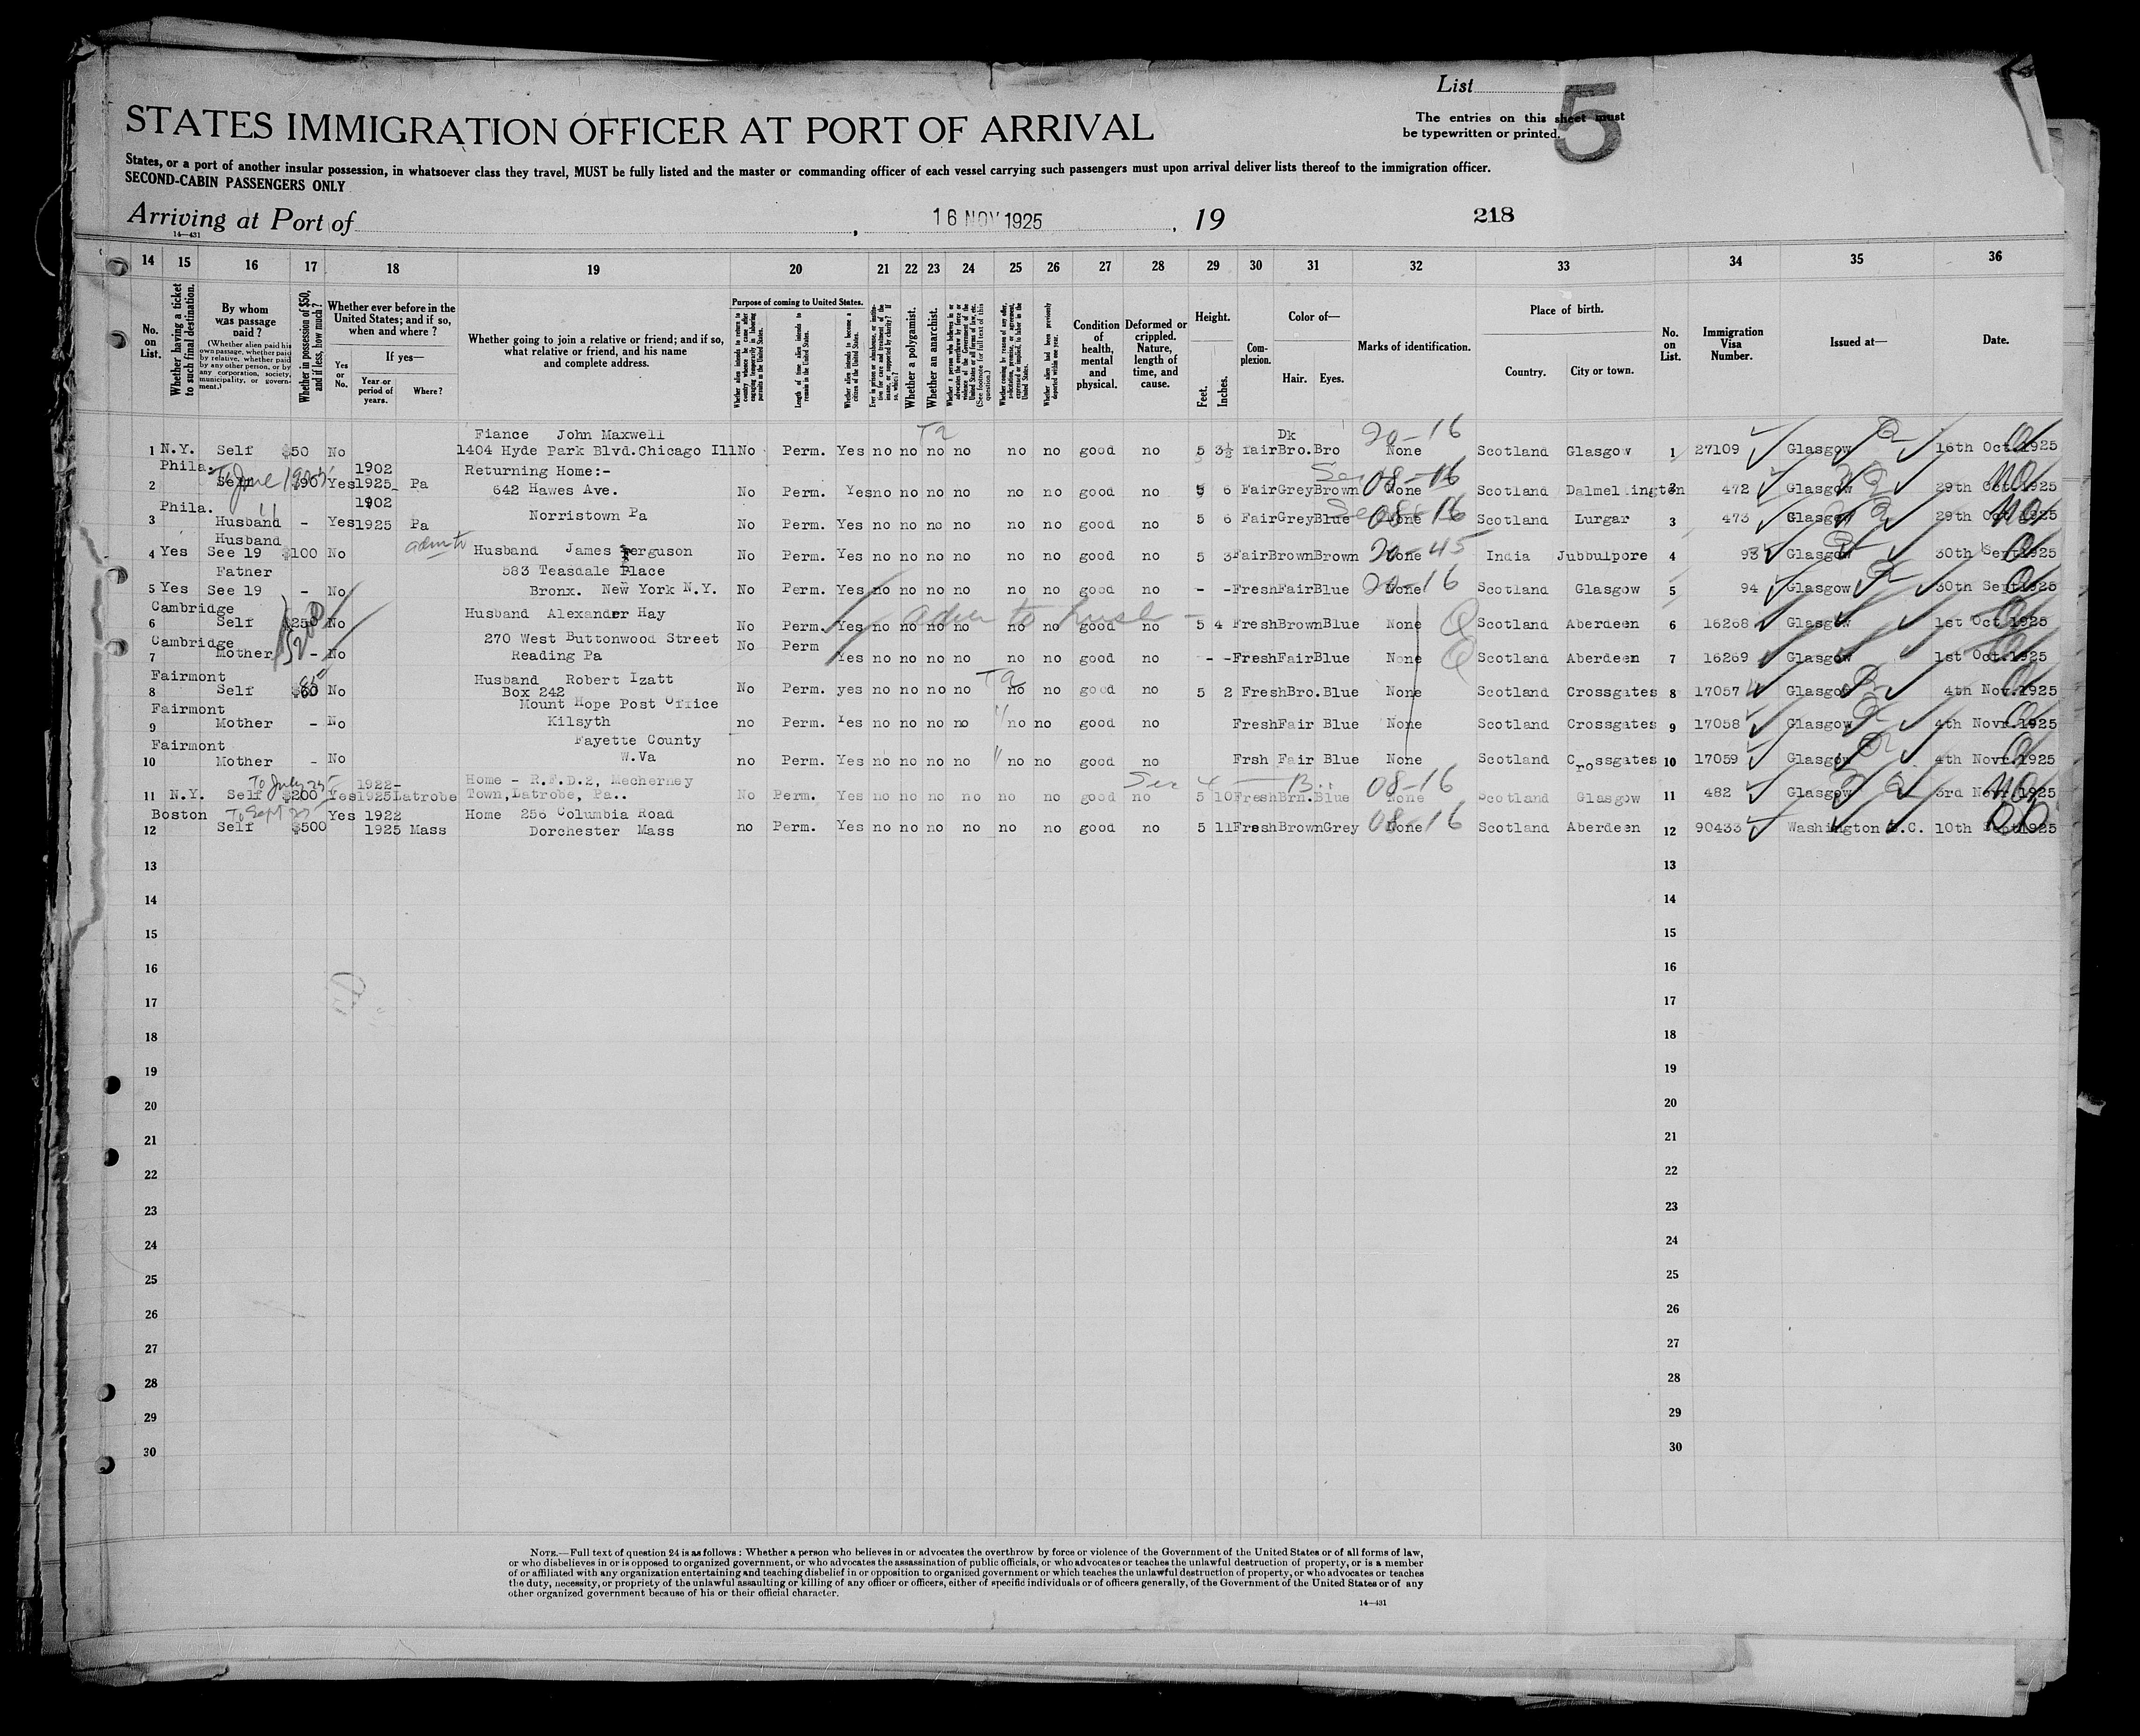 List 5
STATES IMMIGRATION OFFICER AT PORT OF ARRIVAL
The entries on this sheet must
be typewritten or printed.
States, or a port of another insular possession, in whatsoever class they travel, MUST be fully listed and the master or commanding officer of each vessel carrying such passengers must upon arrival deliver lists thereof to the immigration officer.
SECOND-CABIN PASSENGERS ONLY
Arriving at Port of , 16 NOV 1925 , 19 218
14—431
14 15 16 17 18 19 20 21 22 23 24 25 26 27 28 29 30 31 32 33 34 35 36
No. on List.
Whether having a ticket to such final destination.
By whom was passage paid?
(Whether alien paid his own passage, whether paid by relative, whether paid by any other person, or by any corporation, society, municipality, or government.)
Whether in possession of $50, and if less, how much?
Whether ever before in the United States; and if so, when and where?
Yes or No.
If yes—
Year or period of years.
Where?
Whether going to join a relative or friend; and if so, what relative or friend, and his name and complete address.
Purpose of coming to United States.
Length of time alien intends to remain in the United States.
Whether alien intends to become a citizen of the United States.
Whether a polygamist.
Whether an anarchist.
Condition of health, mental and physical.
Deformed or crippled. Nature, length of time, and cause.
Height.
Feet. Inches.
Complexion.
Color of—
Hair. Eyes.
Marks of identification.
Place of birth.
Country. City or town.
No. on List.
Immigration Visa Number.
Issued at—
Date.
Fiance John Maxwell Dk 20-16
1 N.Y. Self $50 No 1404 Hyde Park Blvd.Chicago Ill No Perm. Yes no no no no no no good no 5 3½ fair Bro. Bro None Scotland Glasgow 1 27109 Glasgow 16th Oct 1925
Phila. To June 1925 1902 Returning Home:- 08-16
2 Self $90 Yes 1925 Pa 642 Hawes Ave. No Perm. Yes no no no no no no good no 5 6 Fair Grey Brown None Scotland Dalmellington 2 472 Glasgow 29th Oct 1925
Phila. 1902 Norristown Pa 08-16
3 Husband - Yes 1925 Pa No Perm. Yes no no no no no no good no 5 6 Fair Grey Blue None Scotland Lurgar 3 473 Glasgow 29th Oct 1925
Husband 20-45
4 Yes See 19 $100 No Husband James Ferguson No Perm. Yes no no no no no no good no 5 3 Fair Brown Brown None India Jubbulpore 4 93 Glasgow 30th Sept 1925
Father 583 Teasdale Place 20-16
5 Yes See 19 - No Bronx. New York N.Y. No Perm. Yes no no no no no no good no - - Fresh Fair Blue None Scotland Glasgow 5 94 Glasgow 30th Sept 1925
Cambridge Husband Alexander Hay
6 Self $250 No No Perm. Yes no no no no no no good no 5 4 Fresh Brown Blue None Scotland Aberdeen 6 16268 Glasgow 1st Oct 1925
Cambridge 270 West Buttonwood Street No Perm
7 Mother - No Reading Pa Yes no no no no no no good no - - Fresh Fair Blue None Scotland Aberdeen 7 16269 Glasgow 1st Oct. 1925
Fairmont Husband Robert Izatt
8 Self $60 No Box 242 No Perm. yes no no no no no no good no 5 2 Fresh Bro. Blue None Scotland Crossgates 8 17057 Glasgow 4th Nov. 1925
Fairmont Mount Hope Post Office
9 Mother - No Kilsyth no Perm. Yes no no no no no no good no Fresh Fair Blue None Scotland Crossgates 9 17058 Glasgow 4th Novr. 1925
Fairmont Fayette County
10 Mother - No W.Va no Perm. Yes no no no no no no good no Frsh Fair Blue None Scotland Crossgates 10 17059 Glasgow 4th Novr. 1925
To July 25 1922- Home - R.F.D.2, Mecherney 08-16
11 N.Y. Self $200 Yes 1925 Latrobe Town, Latrobe, Pa.. No Perm. Yes no no no no no no good no 5 10 Fresh Brn. Blue None Scotland Glasgow 11 482 Glasgow 3rd Novr. 1925
Boston To Sept 25 Yes 1922 Home 256 Columbia Road 08-16
12 Self $500 1925 Mass Dorchester Mass no Perm. Yes no no no no no no good no 5 11 Fresh Brown Grey None Scotland Aberdeen 12 90433 Washington D.C. 10th Sept 1925
13 13
14 14
15 15
16 16
17 17
18 18
19 19
20 20
21 21
22 22
23 23
24 24
25 25
26 26
27 27
28 28
29 29
30 30
NOTE.—Full text of question 24 is as follows: Whether a person who believes in or advocates the overthrow by force or violence of the Government of the United States or of all forms of law,
or who disbelieves in or is opposed to organized government, or who advocates the assassination of public officials, or who advocates or teaches the unlawful destruction of property, or is a member
of or affiliated with any organization entertaining and teaching disbelief in or opposition to organized government or which teaches the unlawful destruction of property, or who advocates or teaches
the duty, necessity, or propriety of the unlawful assaulting or killing of any officer or officers, either of specific individuals or of officers generally, of the Government of the United States or of any
other organized government because of his or their official character.
14—431